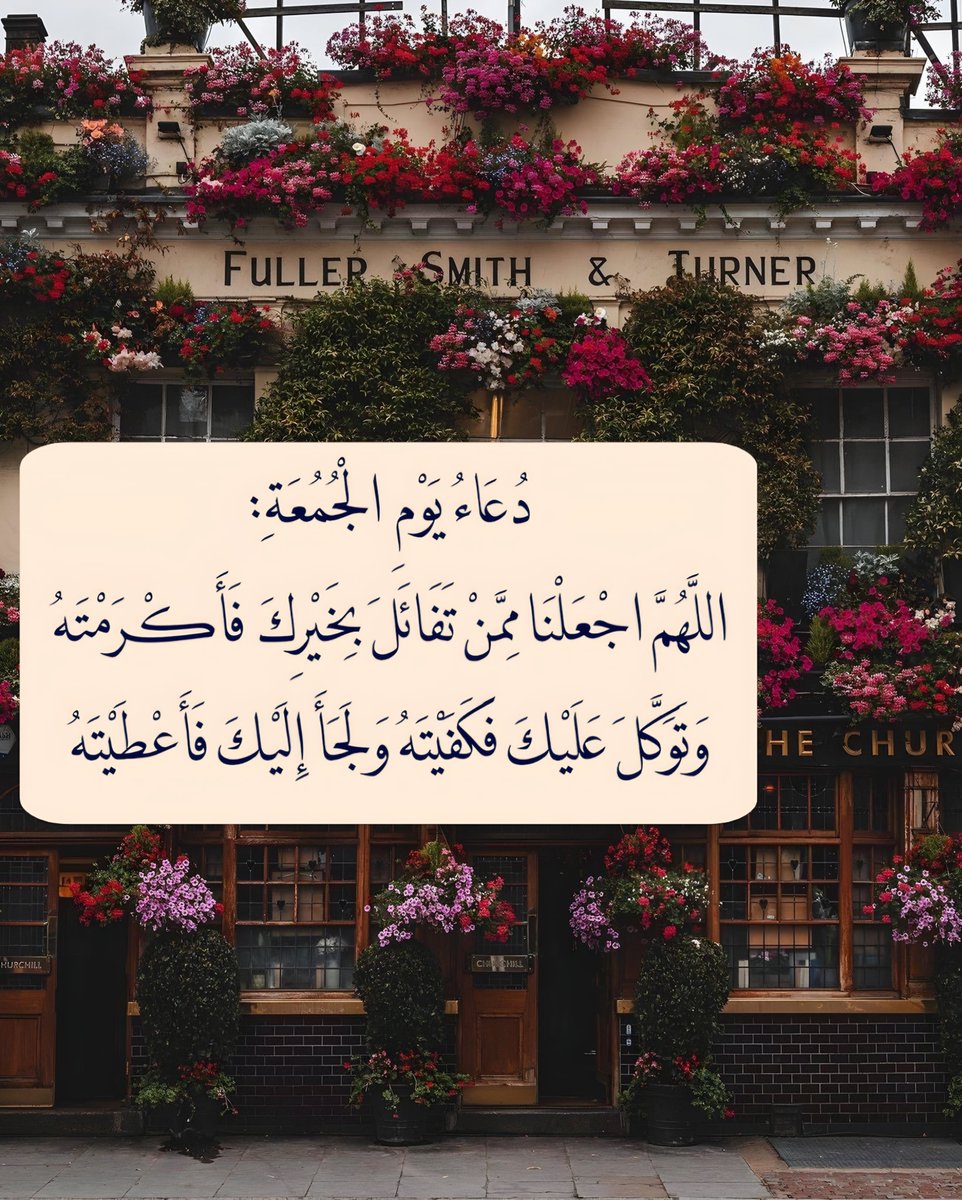 FULLER SMITH & TURNER
دُعَاءُ يَوْمِ الْجُمُعَةِ:
اللَّهُمَّ اجْعَلْنَا مِمَّنْ تَفَائَلَ بِخَيْرِكَ فَأَكْرَمْتَهُ
وَتَوَكَّلَ عَلَيْكَ فَكَفَيْتَهُ وَلَجَأَ إِلَيْكَ فَأَعْطَيْتَهُ
HE CHUR
CHURCHILL
CHURCHILL